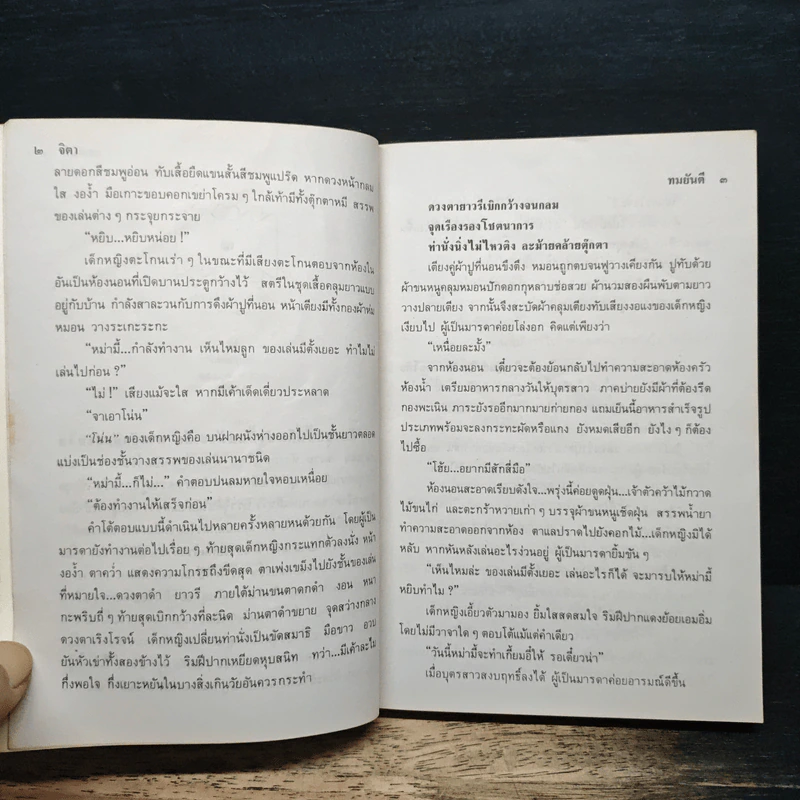 ๒ จิตา
ลายดอกสีชมพูอ่อน ทับเสื้อยืดแขนสั้นสีชมพูแปร๊ด หากดวงหน้ากลม
ใส งอง้ำ มือเกาะขอบคอกเขย่าโครม ๆ ใกล้เท้ามีทั้งตุ๊กตาหมี สรรพ
ของเล่นต่าง ๆ กระจุยกระจาย
“หยิบ...หยิบหน่อย !”
เด็กหญิงตะโกนเร่า ๆ ในขณะที่มีเสียงตะโกนตอบจากห้องใน
อันเป็นห้องนอนที่เปิดบานประตูกว้างไว้ สตรีในชุดเสื้อคลุมยาวแบบ
อยู่กับบ้าน กำลังสาละวนกับการดึงผ้าปูที่นอน หน้าเตียงมีทั้งกองผ้าห่ม
หมอน วางระเกะระกะ
“หม่ามี้...กำลังทำงาน เห็นไหมลูก ของเล่นมีตั้งเยอะ ทำไมไม่
เล่นไปก่อน ?”
“ไม่ !” เสียงแม้จะใส หากมีเค้าเด็ดเดี่ยวประหลาด
“จาเอาโน่น”
“โน่น” ของเด็กหญิงคือ บนฝาผนังห่างออกไปเป็นชั้นยาวตลอด
แบ่งเป็นช่องชั้นวางสรรพของเล่นนานาชนิด
“หม่ามี้...ก็ไม่...” คำตอบปนลมหายใจหอบเหนื่อย
“ต้องทำงานให้เสร็จก่อน”
คำโต้ตอบแบบนี้ดำเนินไปหลายครั้งหลายหนด้วยกัน โดยผู้เป็น
มารดายังทำงานต่อไปเรื่อย ๆ ท้ายสุดเด็กหญิงกระแทกตัวลงนั่ง หน้า
งอง้ำ ตาคว่ำ แสดงความโกรธถึงขีดสุด ตาเพ่งเขม็งไปยังชั้นของเล่น
ที่หมายใจ...ดวงตาดำ ยาวรี ภายใต้ม่านขนตาดกดำ งอน หนา
กะพริบถี่ ๆ ท้ายสุดเบิกกว้างที่ละนิด ม่านตาดำขยาย จุดสว่างกลาง
ดวงตาเริงโรจน์ เด็กหญิงเปลี่ยนท่านั่งเป็นขัดสมาธิ มือขาว อวบ
ยันหัวเข่าทั้งสองข้างไว้ ริมฝีปากเหยียดหุบสนิท ทว่า...มีเค้าละไม
กึ่งพอใจ กึ่งเยาะหยันในบางสิ่งเกินวัยอันควรกระทำ
ทมยันตี ๓
ดวงตายาวรีเบิกกว้างจนกลม
จุดเรืองรองโชตนาการ
ท่านั่งนิ่งไม่ไหวติง ละม้ายคล้ายตุ๊กตา
เตียงคู่ผ้าปูที่นอนขึงตึง หมอนถูกตบจนฟูวางเคียงกัน ปูทับด้วย
ผ้าขนหนูคลุมหมอนปักดอกกุหลาบช่อสวย ผ้านวมสองผืนพับตามยาว
วางปลายเตียง จากนั้นจึงสะบัดผ้าคลุมเตียงทับเสียงงอแงของเด็กหญิง
เงียบไป ผู้เป็นมารดาค่อยโล่งอก คิดแต่เพียงว่า
“เหนื่อยละมั้ง”
จากห้องนอน เดี๋ยวจะต้องย้อนกลับไปทำความสะอาดห้องครัว
ห้องน้ำ เตรียมอาหารกลางวันให้บุตรสาว ภาคบ่ายยังมีผ้าที่ต้องรีด
กองพะเนิน ภาระยังรออีกมากมายก่ายกอง แถมเย็นนี้อาหารสำเร็จรูป
ประเภทพร้อมจะลงกระทะผัดหรือแกง ยังหมดเสียอีก ยังไง ๆ ก็ต้อง
ไปซื้อ
“โฮ้ย...อยากมีสักสี่มือ”
ห้องนอนสะอาดเรียบดังใจ...พรุ่งนี้ค่อยดูดฝุ่น...เจ้าตัวคว้าไม้กวาด
ไม้ขนไก่ และตะกร้าหวายเก่า ๆ บรรจุผ้าขนหนูเช็ดฝุ่น สรรพน้ำยา
ทำความสะอาดออกจากห้อง ตาแลปราดไปยังคอกไม้...เด็กหญิงมิได้
หลับ หากหันหลังเล่นอะไรง่วนอยู่ ผู้เป็นมารดายิ้มขัน ๆ
“เห็นไหมล่ะ ของเล่นมีตั้งเยอะ เล่นอะไรก็ได้ จะมารบให้หม่ามี้
หยิบทำไม ?”
เด็กหญิงเอี้ยวตัวมามอง ยิ้มใสสดสมใจ ริมฝีปากแดงย้อยเอมอิ่ม
โดยไม่มีวาจาใด ๆ ตอบโต้แม้แต่คำเดียว
“วันนี้หม่ามี้จะทำเกี้ยมอี๋ให้ รอเดี๋ยวน่า”
เมื่อบุตรสาวสงบฤทธิ์ลงได้ ผู้เป็นมารดาค่อยอารมณ์ดีขึ้น